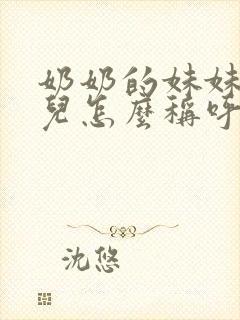 奶奶的妹妹
兒怎麼稱呼
沈悠